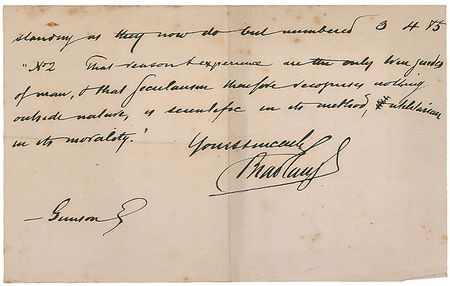 standing as they now do but numbered 3 4 & 5
"No 2 That reason & experience are the only true guides
of man, & that Secularism therefore recognises nothing
outside nature, is scientific in its method, & utilitarian
in its morality."
Yours sincerely
C Bradlaugh
— Gunson Esq